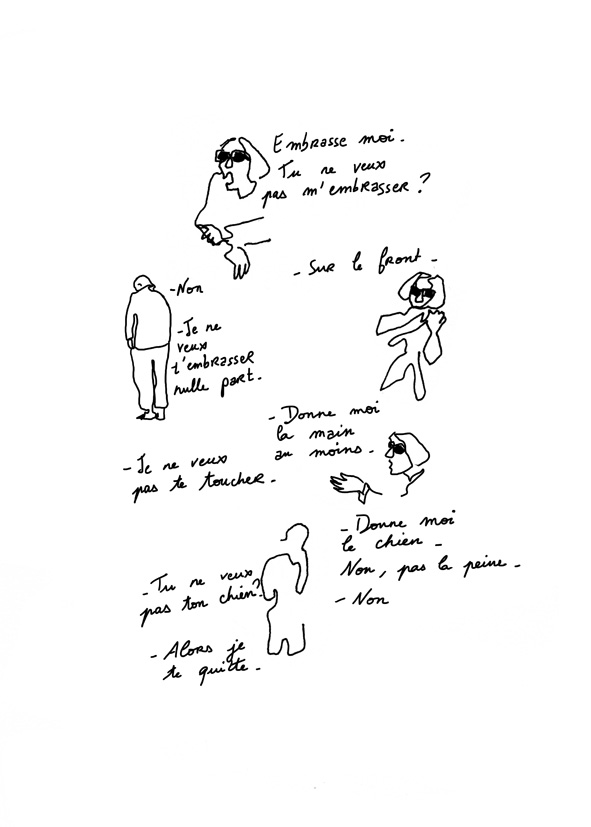 Embrasse moi.
Tu ne veux
pas m'embrasser ?
- Sur le front -
- Non
- Je ne
veux
t'embrasser
nulle part.
- Donne moi
la main
au moins -
- Je ne veux
pas te toucher -
- Donne moi
le chien -
Non, pas la peine -
- Tu ne veux
pas ton chien ?
- Non
- Alors je
te quitte -